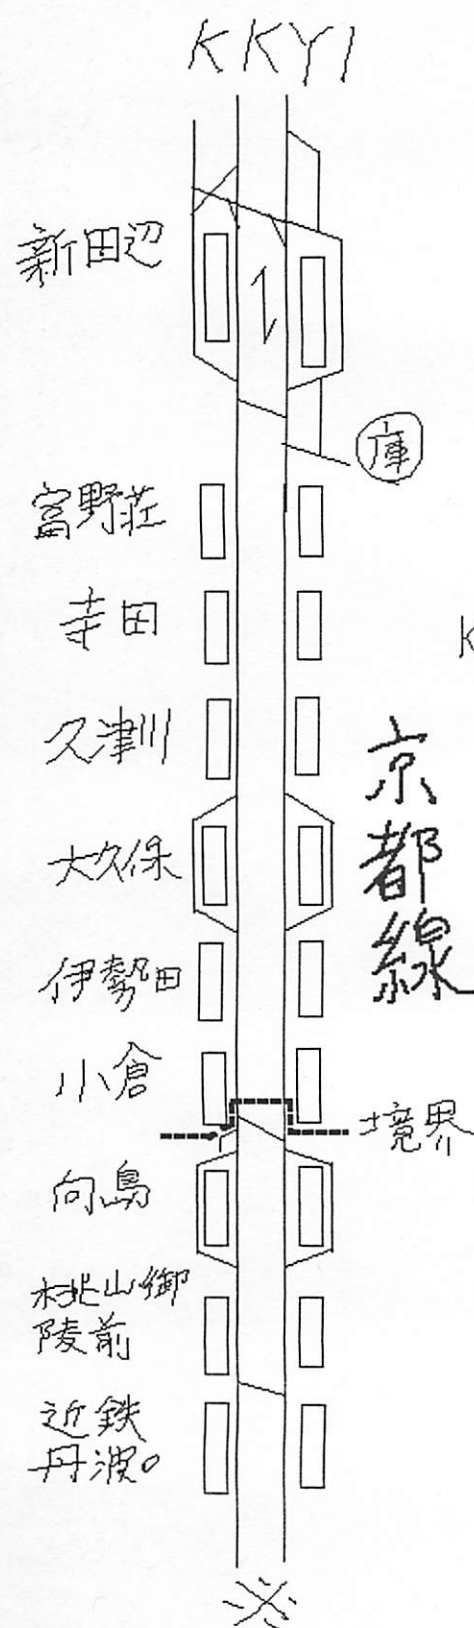 KKY1
新田辺
庫
富野荘
寺田
K
久津川
京都線
大久保
伊勢田
小倉
境界
向島
桃山御
陵前
近鉄
丹波。
※